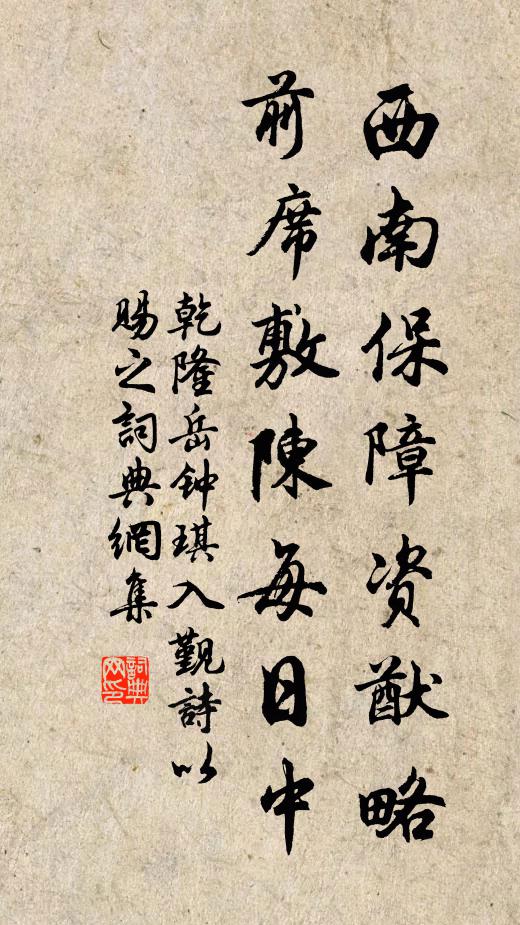 西南保障资猷略
前席敷陳每日中
乾隆岳钟琪入觐詩以
賜之詞典網集
詞典网印